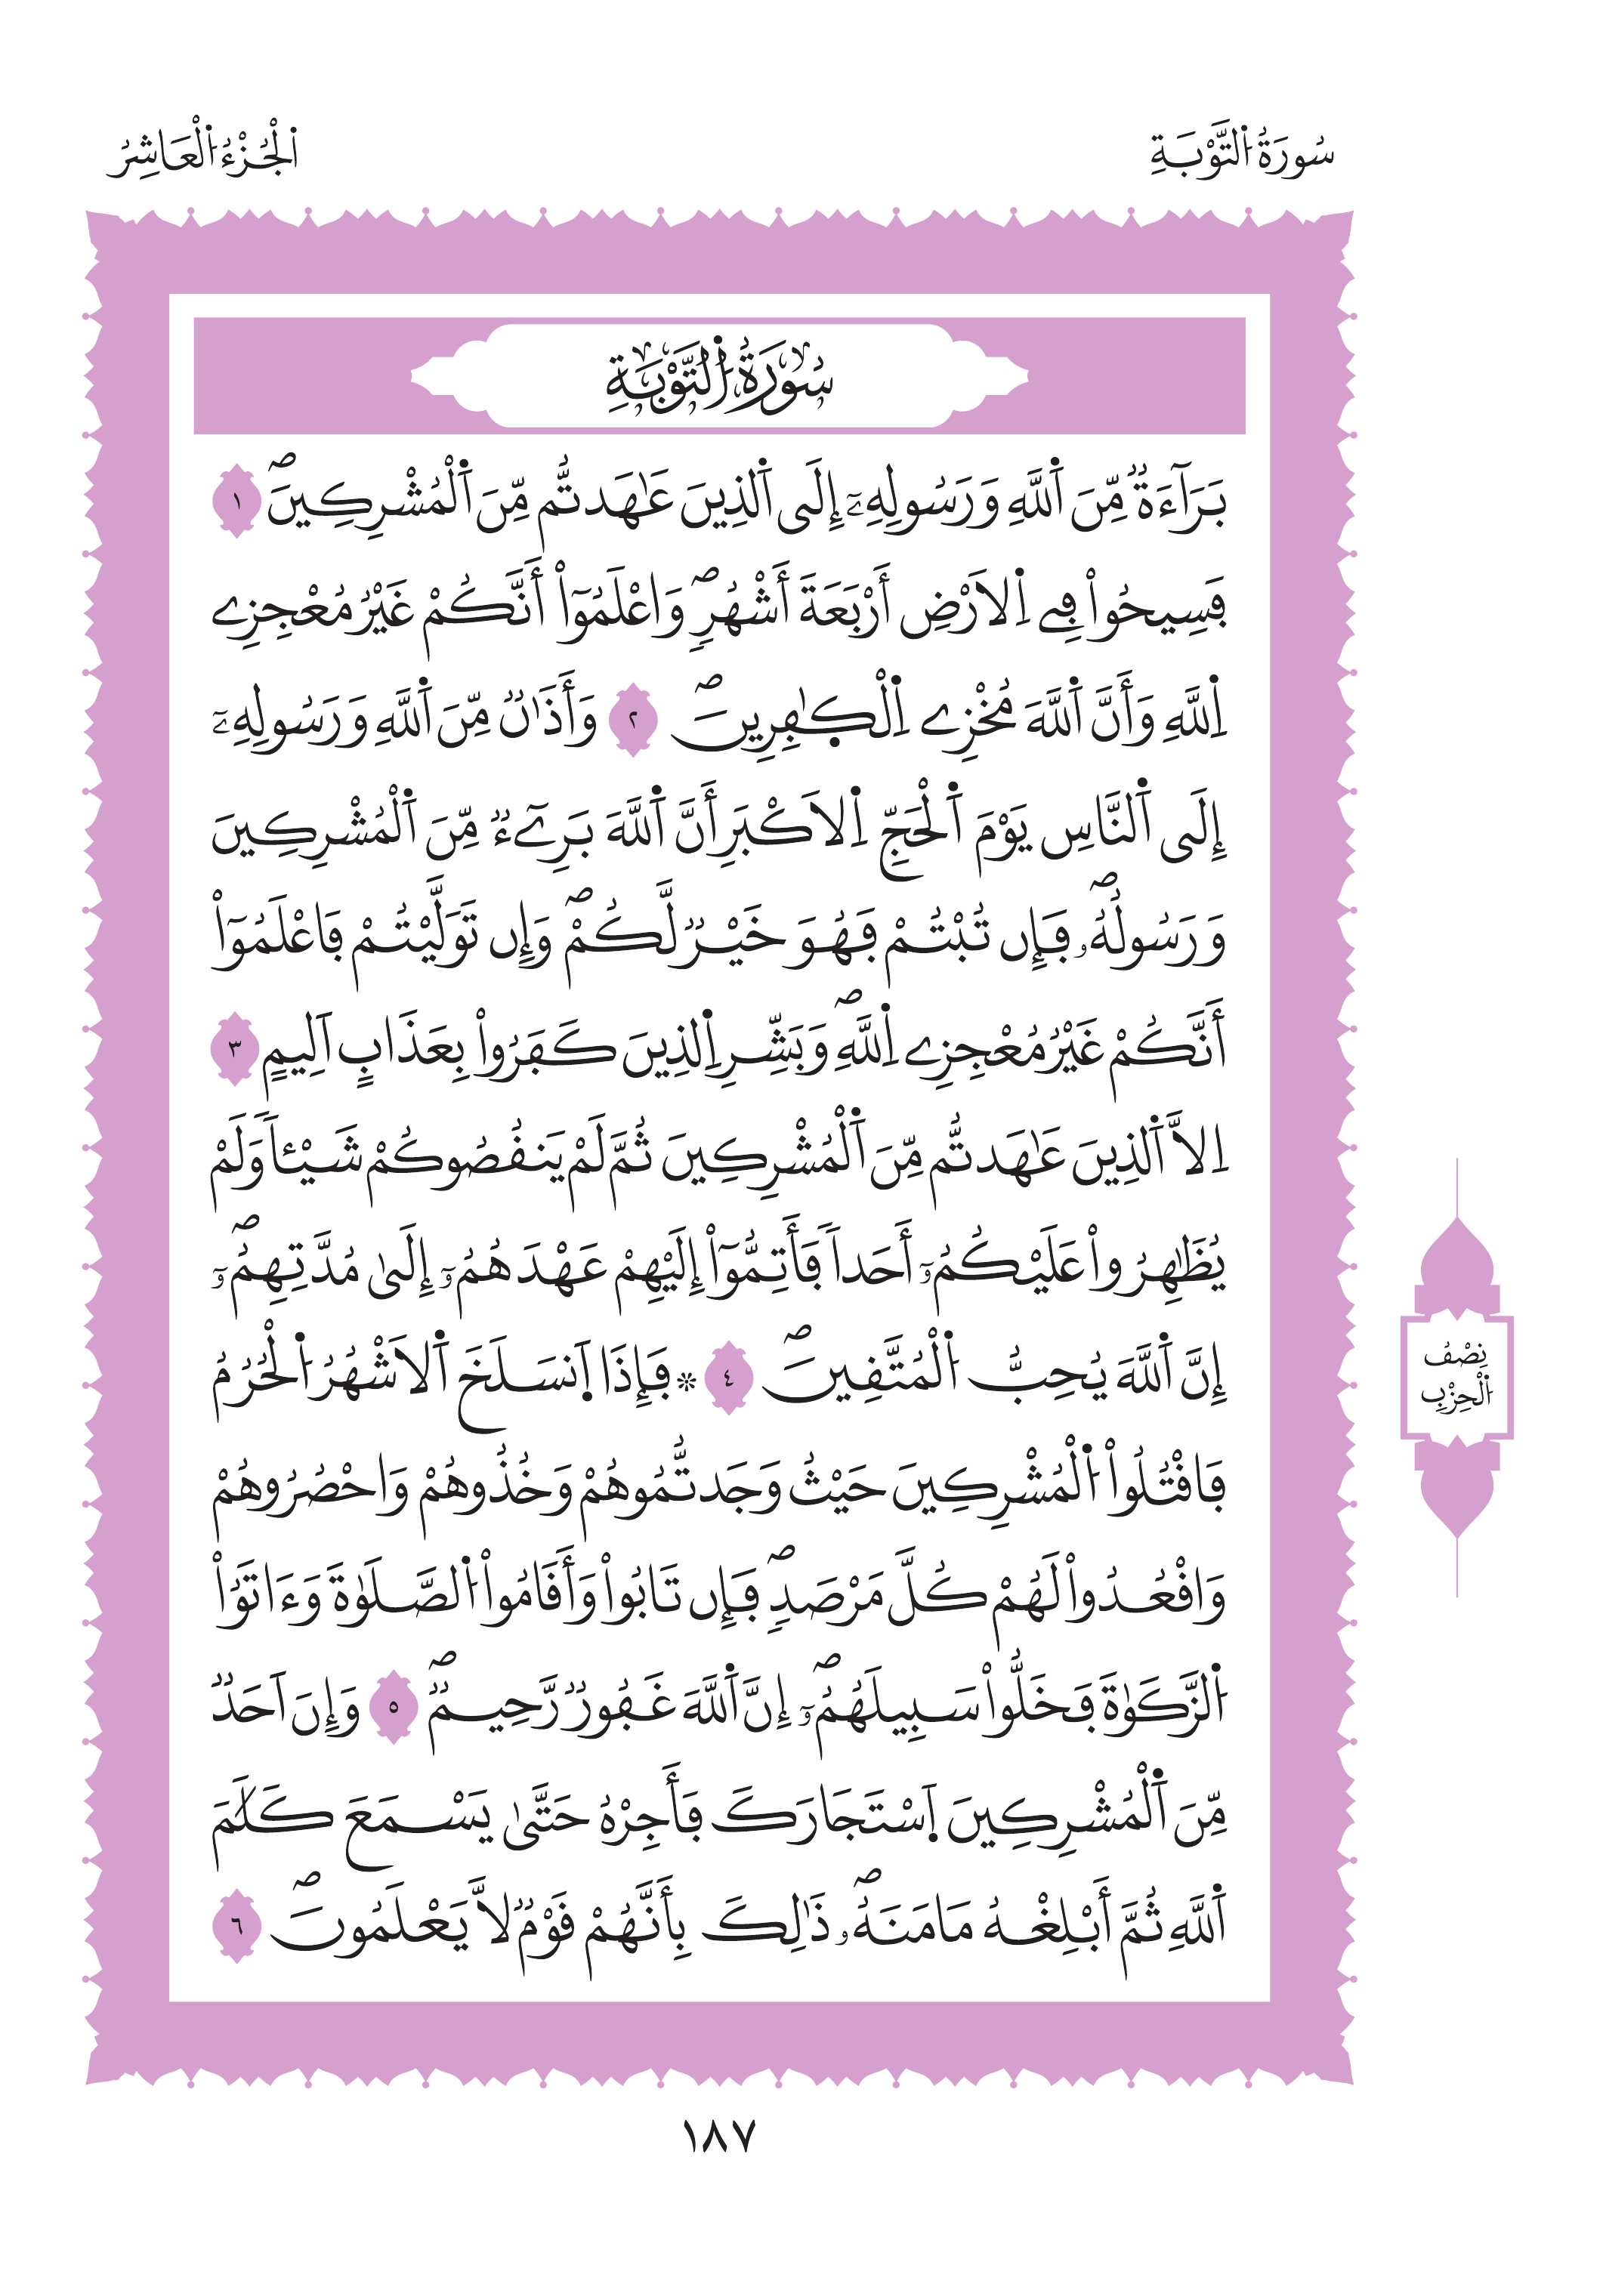 سُورَةُ اُ۬لتَّوْبَةِ
اَ۬لْجُزْءُ اُ۬لْعَاشِرُ
سُورَةُ اُ۬لتَّوْبَةِ
بَرَآءَةٞ مِّنَ اَ۬للَّهِ وَرَسُولِهِۦٓ إِلَى اَ۬لذِينَ عَٰهَدتُّم مِّنَ اَ۬لْمُشْرِكِينَۖ ١
فَسِيحُواْ فِے اِ۬لَارْضِ أَرْبَعَةَ أَشْهُرٖۖ وَاعْلَمُوٓاْ أَنَّكُمْ غَيْرُ مُعْجِزِے
اِ۬للَّهِ وَأَنَّ اَ۬للَّهَ مُخْزِے اِ۬لْكٰ۪فِرِينَۖ ٢ وَأَذَٰنٞ مِّنَ اَ۬للَّهِ وَرَسُولِهِۦٓ
إِلَى اَ۬لنَّاسِ يَوْمَ اَ۬لْحَجِّ اِ۬لَاكْبَرِ أَنَّ اَ۬للَّهَ بَرِےٓءٞ مِّنَ اَ۬لْمُشْرِكِينَ
وَرَسُولُهُۥۖ فَإِن تُبْتُمْ فَهُوَ خَيْرٞ لَّكُمْۖ وَإِن تَوَلَّيْتُمْ فَاعْلَمُوٓاْ
أَنَّكُمْ غَيْرُ مُعْجِزِے اِ۬للَّهِۖ وَبَشِّرِ اِ۬لذِينَ كَفَرُواْ بِعَذَابٍ اَلِيمٍ ٣
اِلَّا اَ۬لذِينَ عَٰهَدتُّم مِّنَ اَ۬لْمُشْرِكِينَ ثُمَّ لَمْ يَنقُصُوكُمْ شَيْـٔاٗ وَلَمْ
يُظَٰهِرُواْ عَلَيْكُمُۥٓ أَحَداٗ فَأَتِمُّوٓاْ إِلَيْهِمْ عَهْدَهُمُۥٓ إِلَىٰ مُدَّتِهِمُۥٓۖ
إِنَّ اَ۬للَّهَ يُحِبُّ اُ۬لْمُتَّقِينَۖ ٤ ۞ فَإِذَا اَ۪نسَلَخَ اَ۬لَاشْهُرُ اُ۬لْحُرُمُ
فَاقْتُلُواْ اُ۬لْمُشْرِكِينَ حَيْثُ وَجَدتُّمُوهُمْ وَخُذُوهُمْ وَاحْصُرُوهُمْ
وَاقْعُدُواْ لَهُمْ كُلَّ مَرْصَدٖۖ فَإِن تَابُواْ وَأَقَامُواْ اُ۬لصَّلَوٰةَ وَءَاتَوُاْ
اُ۬لزَّكَوٰةَ فَخَلُّواْ سَبِيلَهُمُۥٓۖ إِنَّ اَ۬للَّهَ غَفُورٞ رَّحِيمٞۖ ٥ وَإِنَ اَحَدٞ
مِّنَ اَ۬لْمُشْرِكِينَ اَ۪سْتَجَارَكَ فَأَجِرْهُ حَتَّىٰ يَسْمَعَ كَلَٰمَ
اَ۬للَّهِ ثُمَّ أَبْلِغْهُ مَامَنَهُۥۖ ذَٰلِكَ بِأَنَّهُمْ قَوْمٞ لَّا يَعْلَمُونَۖ ٦
نِصْفُ
اُ۬لْحِزْبِ
١٨٧